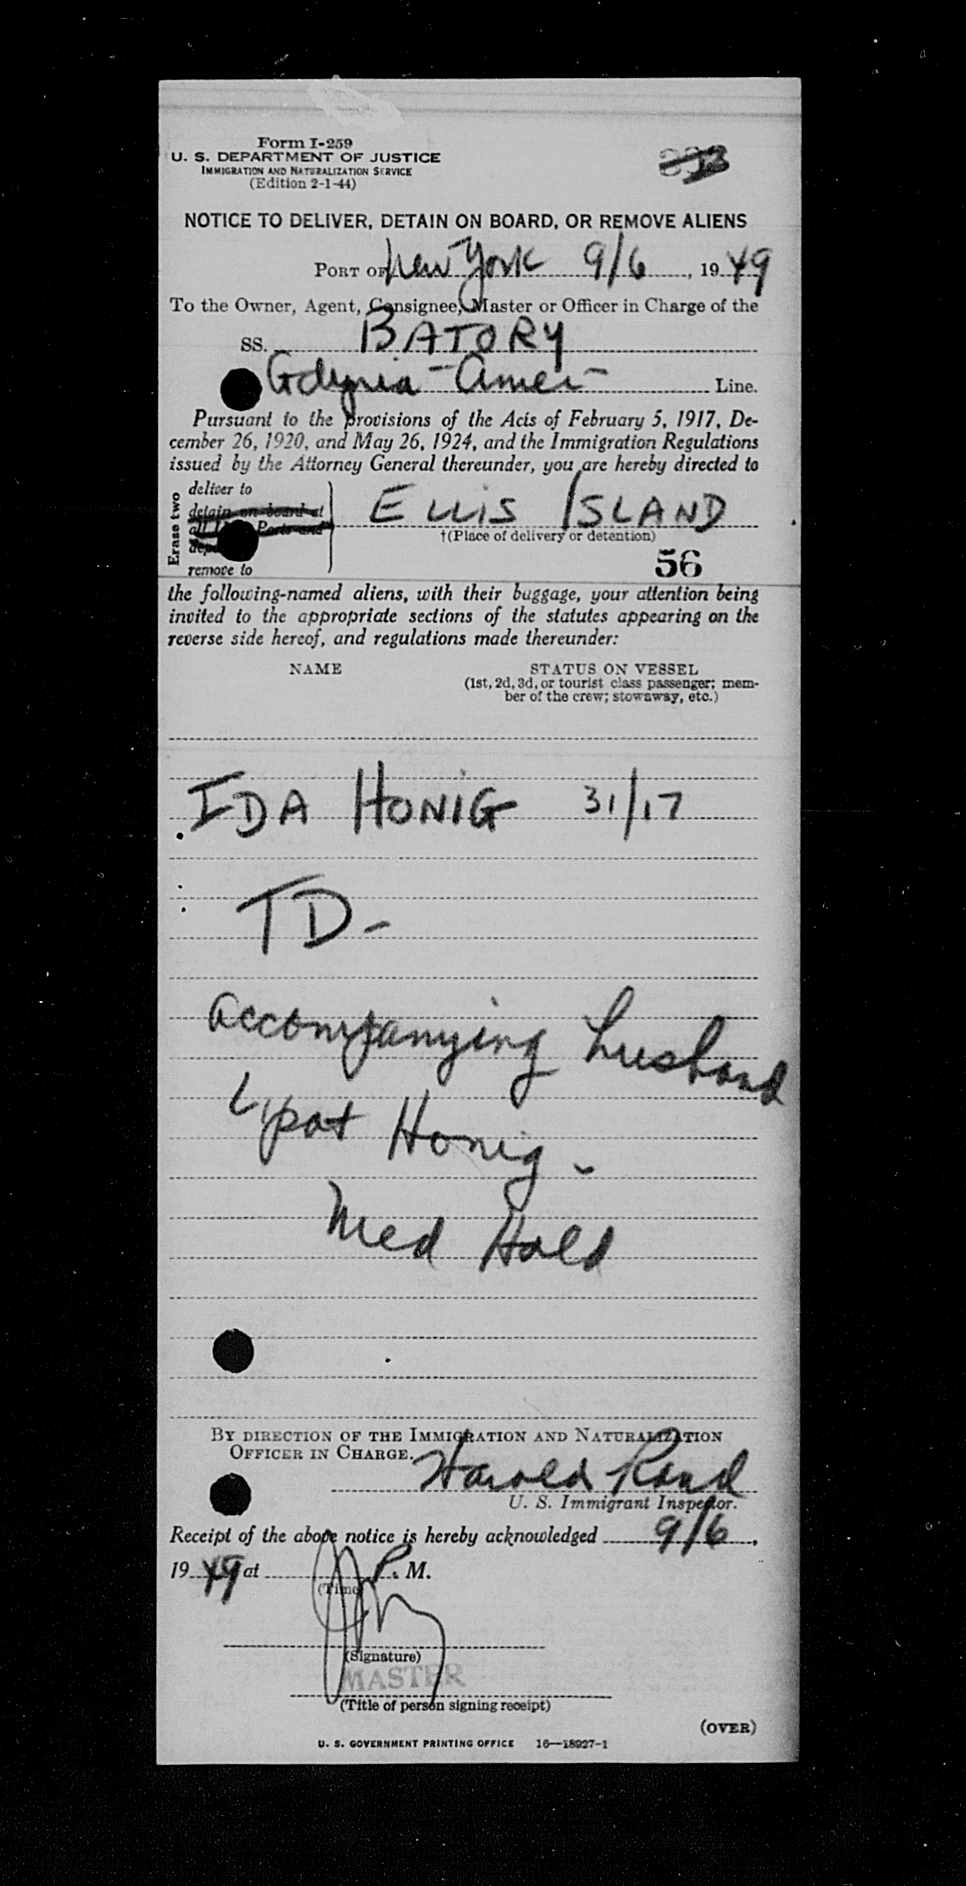 Form I-259
U. S. DEPARTMENT OF JUSTICE
IMMIGRATION AND NATURALIZATION SERVICE
(Edition 2-1-44)
NOTICE TO DELIVER, DETAIN ON BOARD, OR REMOVE ALIENS
PORT OF New York 9/6, 1949
To the Owner, Agent, Consignee, Master or Officer in Charge of the
SS. BATORY
Gdynia-Amer- Line.
Pursuant to the provisions of the Acts of February 5, 1917, De-
cember 26, 1920, and May 26, 1924, and the Immigration Regulations
issued by the Attorney General thereunder, you are hereby directed to
Erase two
deliver to
detain on board at
ELLIS ISLAND
Ports and
†(Place of delivery or detention)
remove to
56
the following-named aliens, with their baggage, your attention being
invited to the appropriate sections of the statutes appearing on the
reverse side hereof, and regulations made thereunder:
NAME STATUS ON VESSEL
(1st, 2d, 3d, or tourist class passenger; mem-
ber of the crew; stowaway, etc.)
IDA HONIG 31/17
TD-
accompanying husband
Lipot Honig -
Med Hold
BY DIRECTION OF THE IMMIGRATION AND NATURALIZATION
OFFICER IN CHARGE.
Harold Rand
U. S. Immigrant Inspector.
Receipt of the above notice is hereby acknowledged 9/6,
1949 at P. M.
(Time)
(Signature)
MASTER
(Title of person signing receipt)
(OVER)
U. S. GOVERNMENT PRINTING OFFICE 16—18927-1